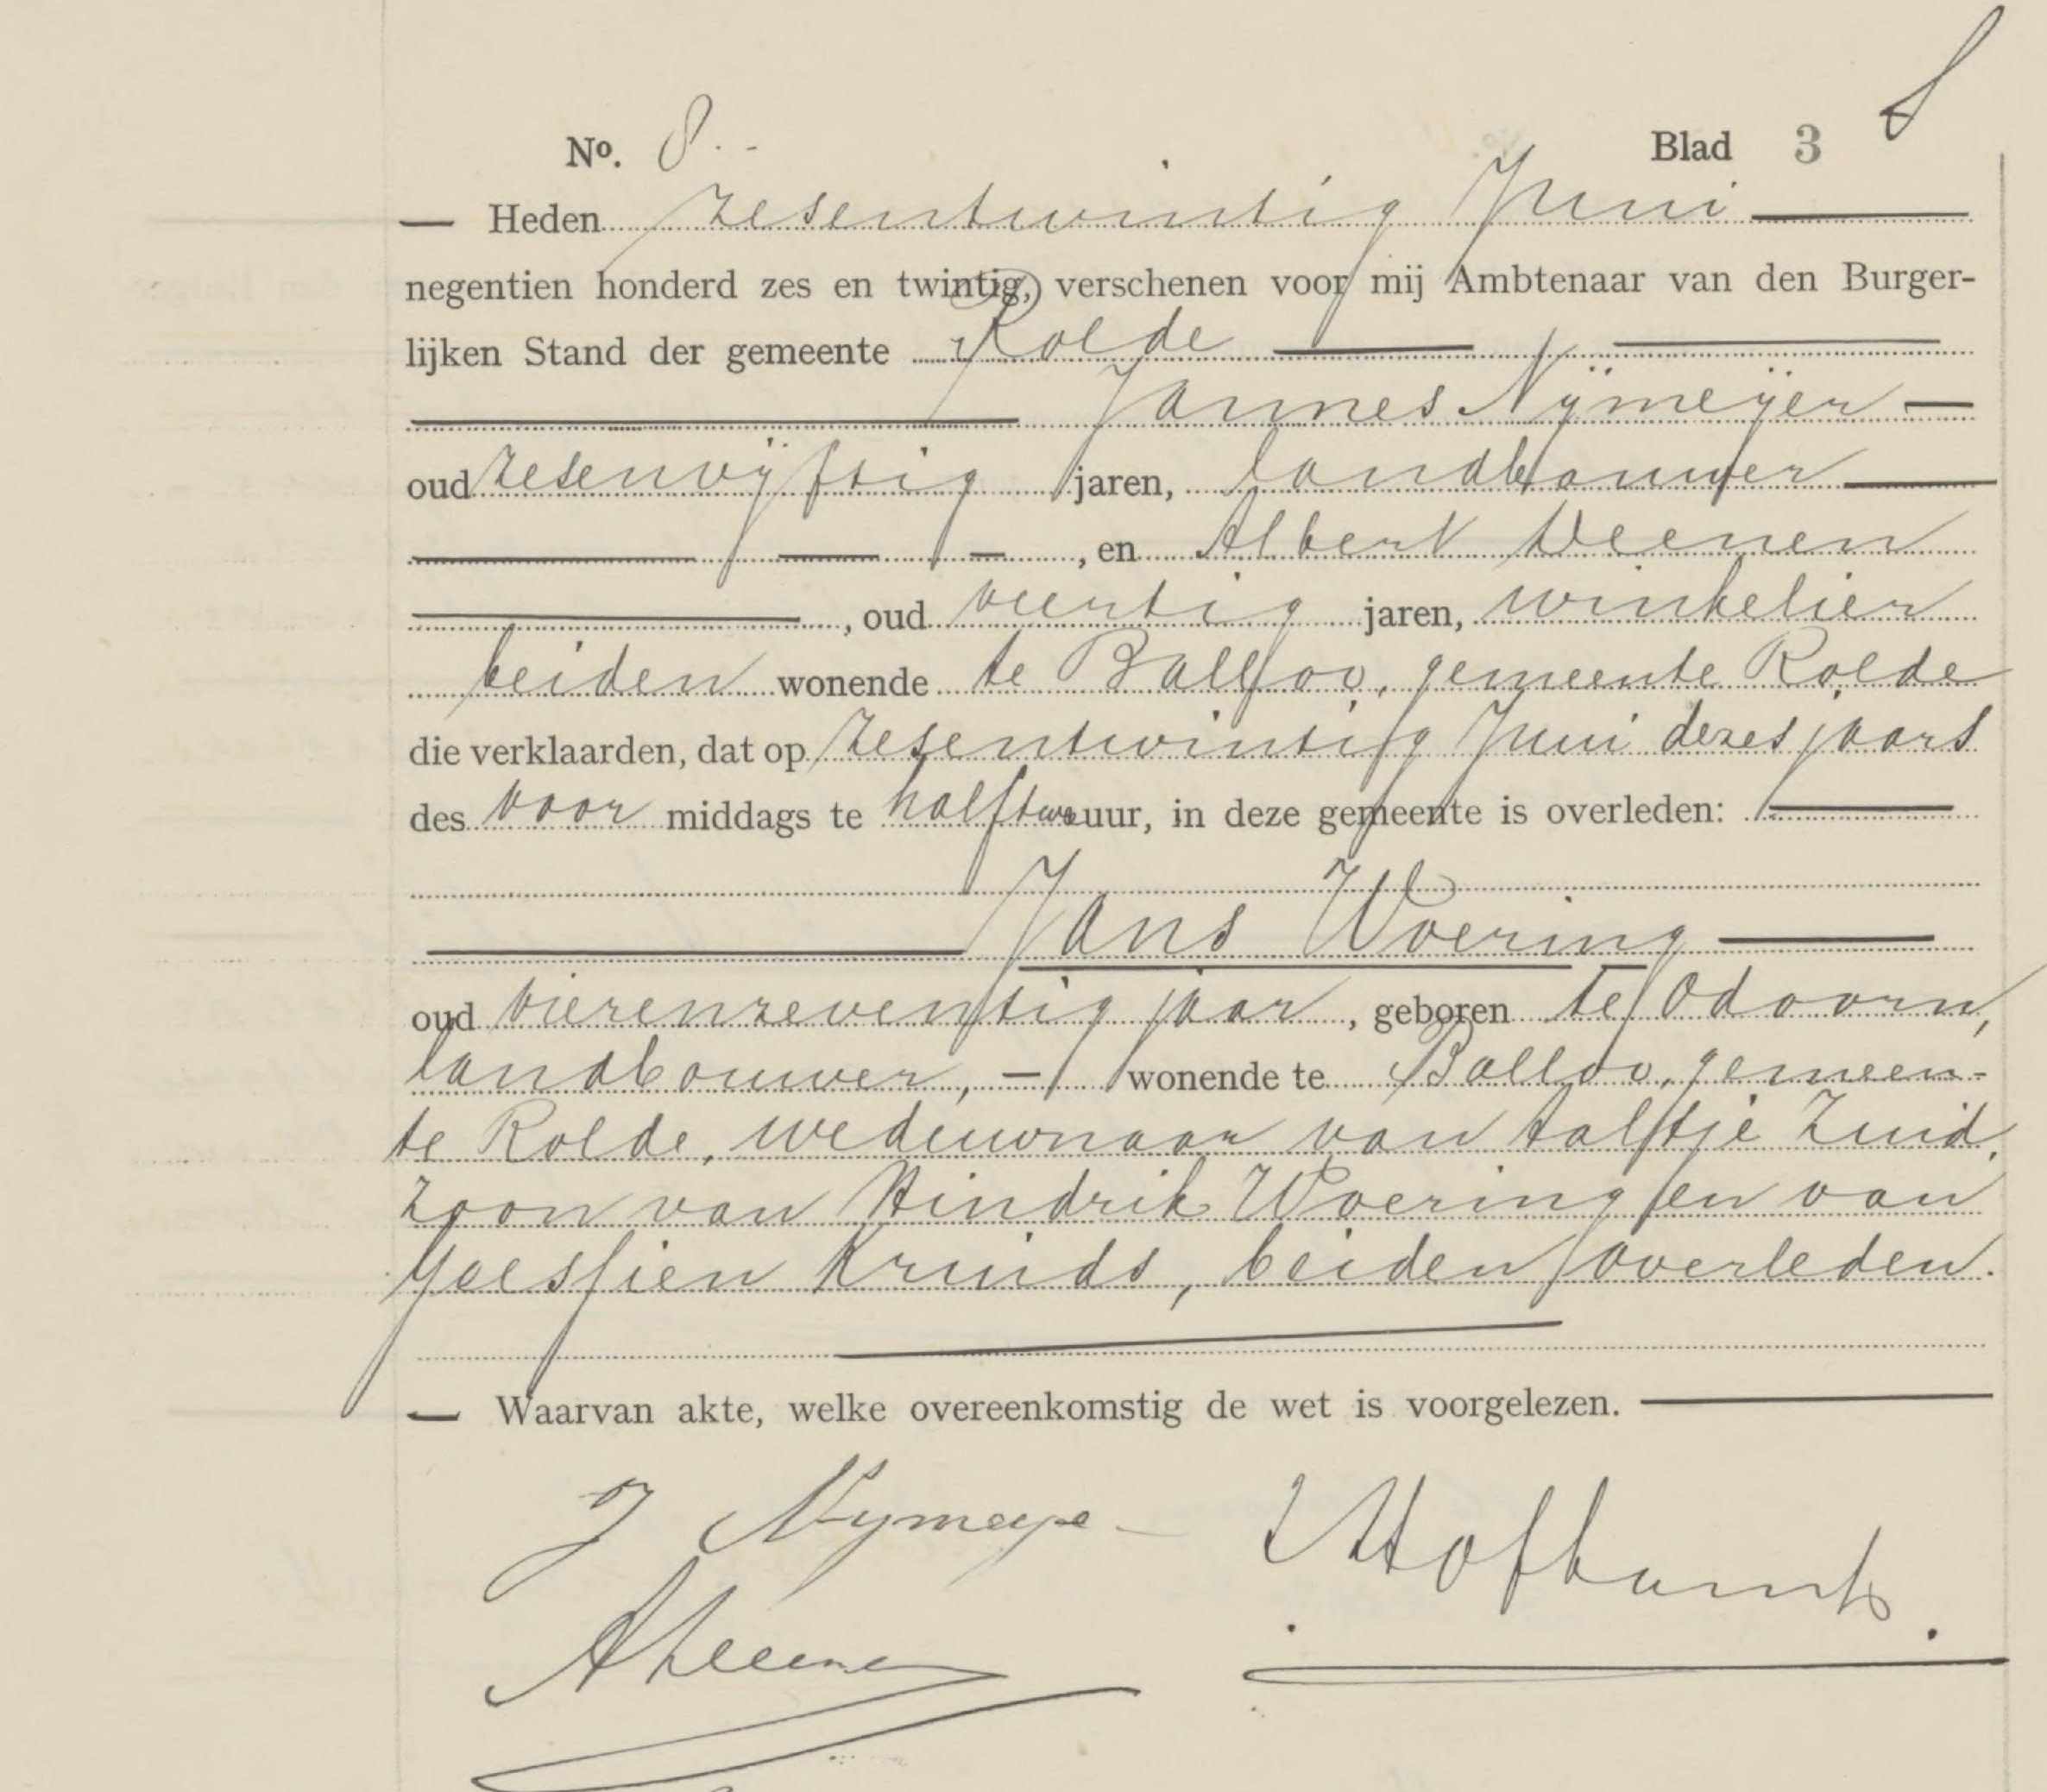 No. 8.
Blad 3
8
Heden zesentwintig Juni
negentien honderd zes en twintig, verschenen voor mij Ambtenaar van den Burger-
lijken Stand der gemeente Rolde
Jannes Nijmeijer
oud zesenvijftig jaren, landbouwer
, en Albert Deenen
, oud veertig jaren, winkelier
beiden wonende te Balloo, gemeente Rolde
die verklaarden, dat op zesentwintig Juni dezes jaars
des voor middags te half twee uur, in deze gemeente is overleden:
Jans Woering
oud vierenzeventig jaar, geboren te Odoorn,
landbouwer, wonende te Balloo, gemeen-
te Rolde, weduwnaar van Aaltje Zuid,
zoon van Hindrik Woering en van
Kruids, beiden overleden.
Waarvan akte, welke overeenkomstig de wet is voorgelezen.
J Nymeyer